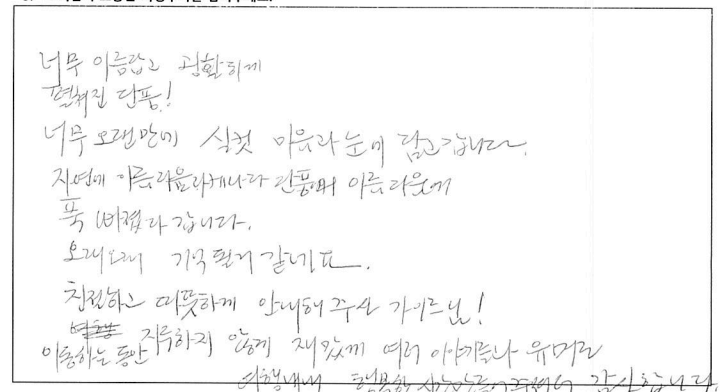 너무 아름답고 광활하게
펼쳐진 단풍!
너무 오랜만에 실컷 마음과 눈에 담고 갑니다.
자연에 아름다움과 캐나다 단풍의 아름다움에
푹 빠졌다 갑니다.
오래오래 기억될거 같네요.
친절하고 따뜻하게 안내해 주신 가이드님!
이동하는 동안 지루하지 않게 재밌게 여러 이야기들과 유머로
여행내내 행복한 감사합니다.